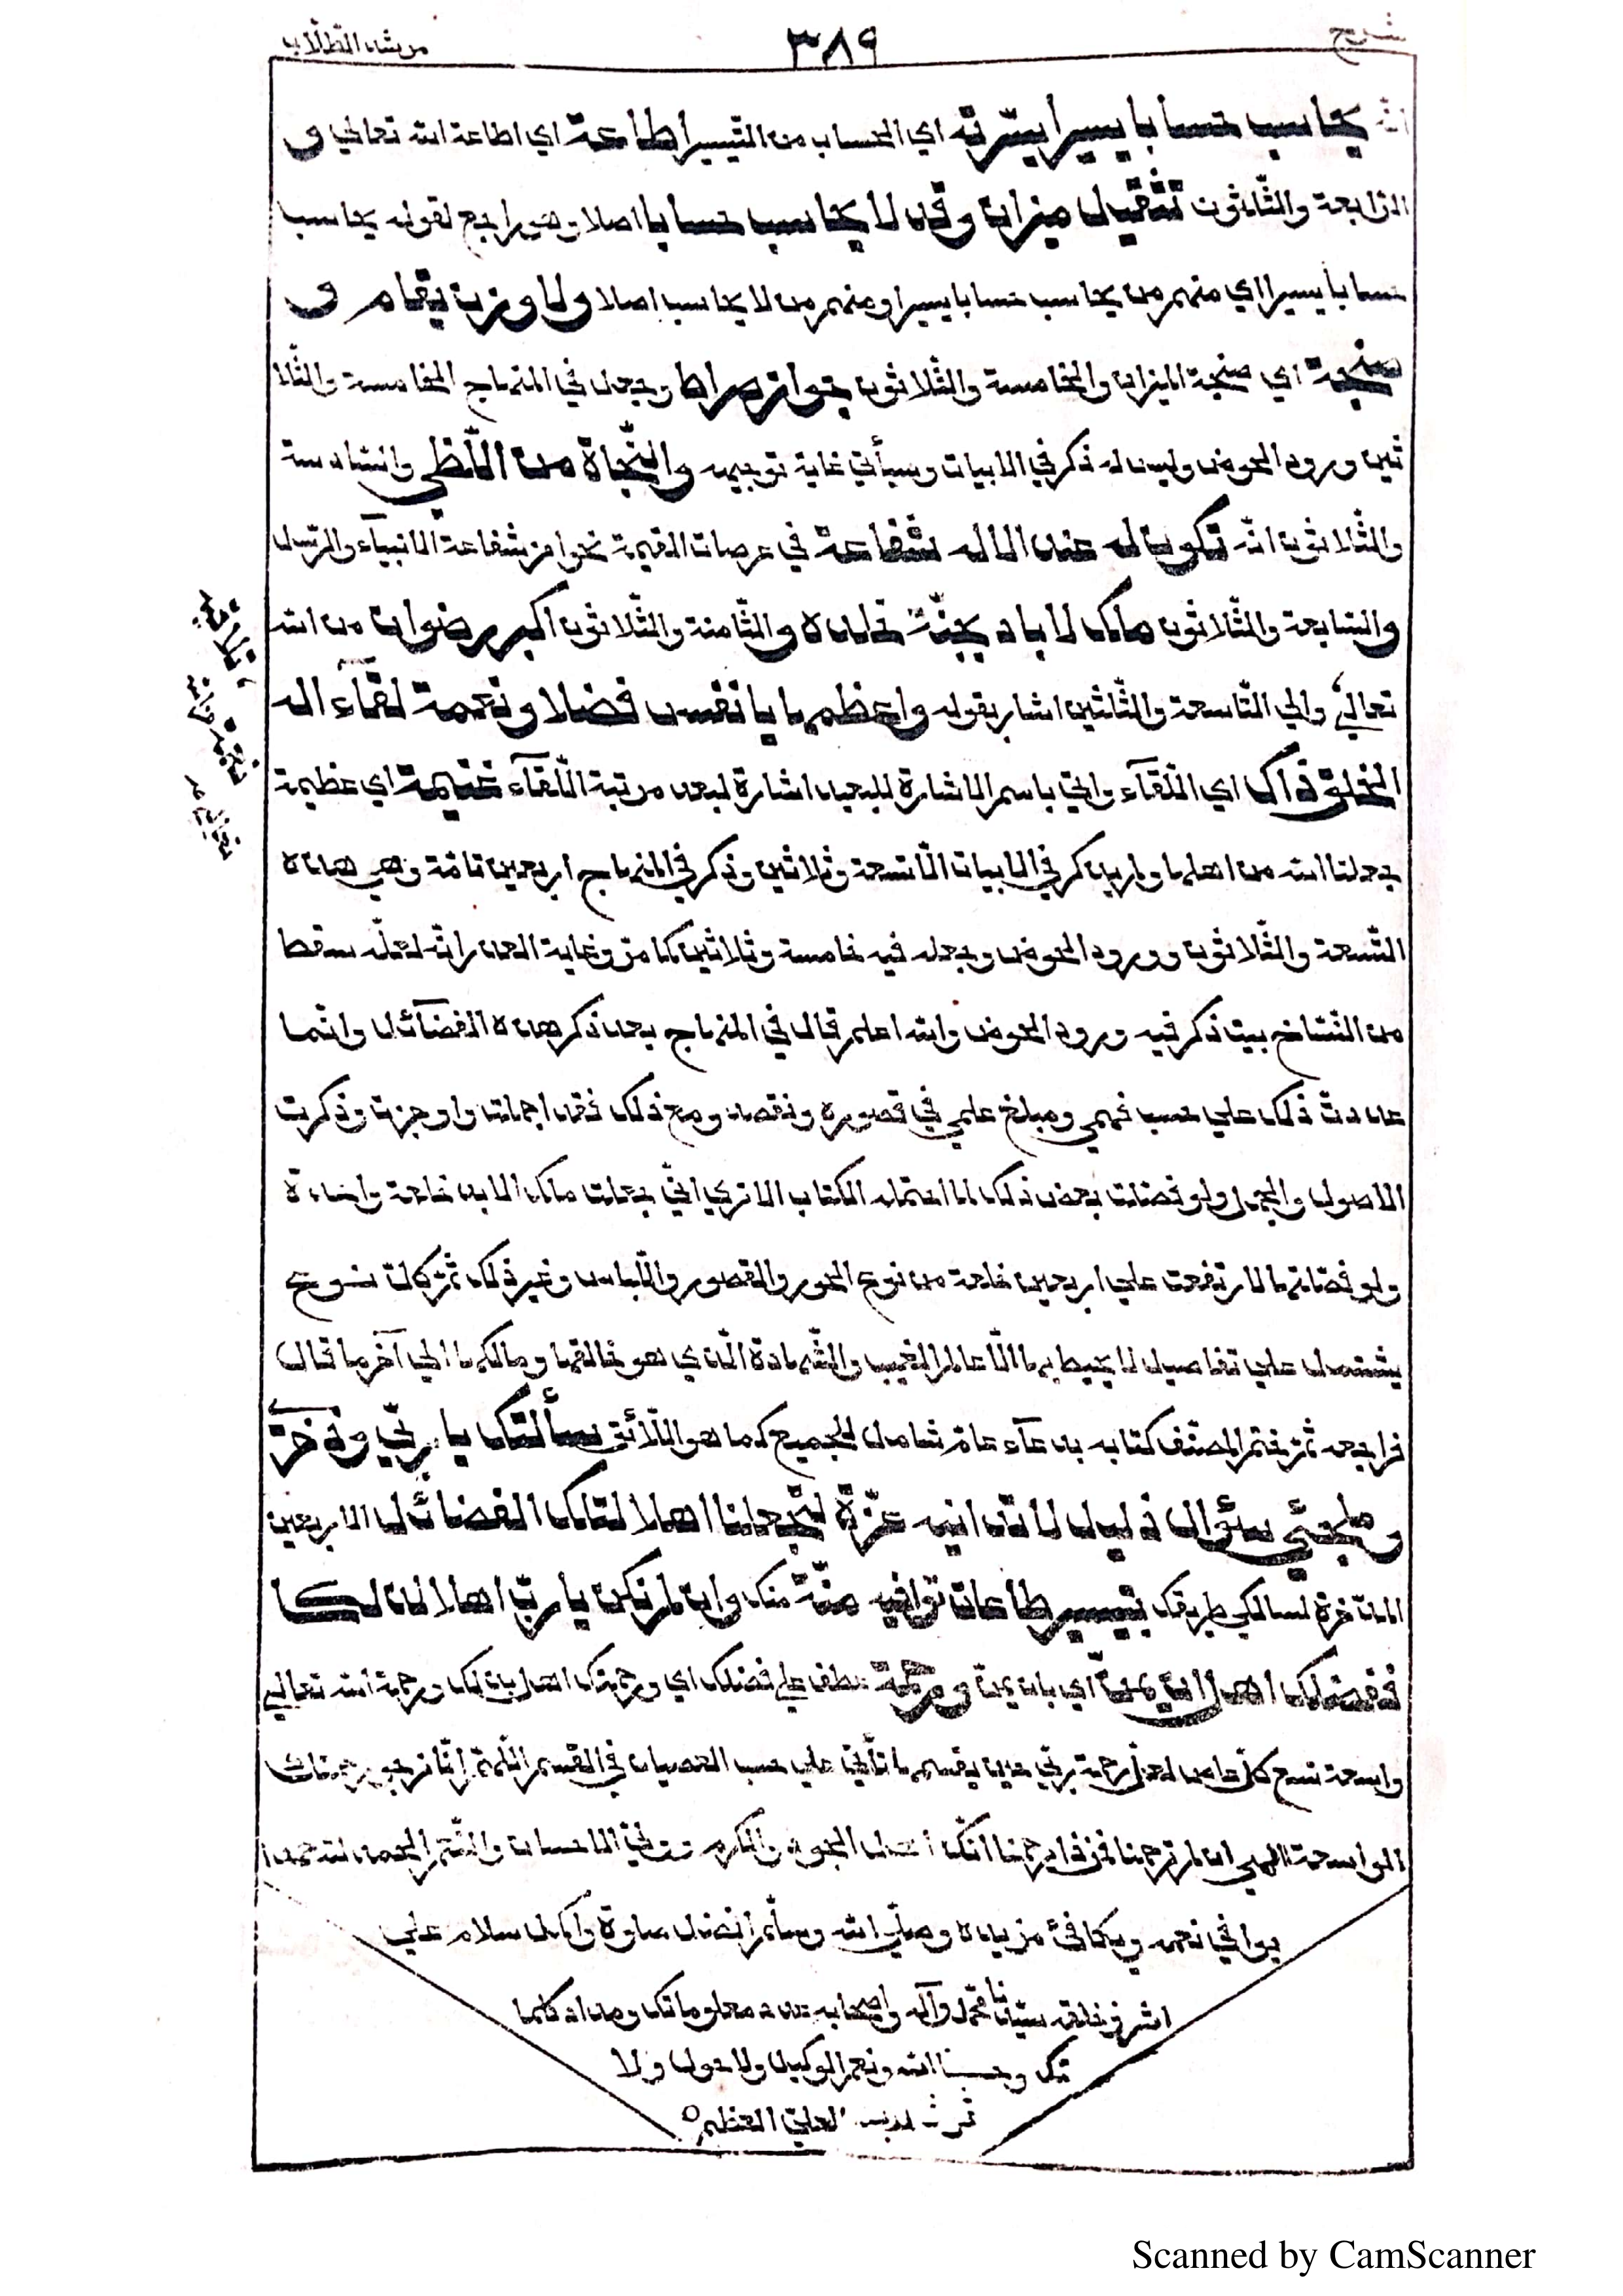 شرح ٣٨٩ مرشد الطّلّاب
انّه يحاسب حسابا يسيرا يسّرته اي الحساب من التيسير اطاعة اي اطاعة الله تعالى و
الرّابعة والثّلثون تثقيل ميزان وقد لا يحاسب حسابا اصلا وهو راجع لقوله يحاسب
حسابا يسيرا اي منهم من يحاسب حسابا يسيرا ومنهم من لا يحاسب اصلا ولا وزن يقام و
صنجة اي صنجة الميزان والخامسة والثّلاثون جواز صراط وجعل في المنهاج الخامسة والثّلا
ثين ورود الحوض وليس له ذكر في الابيات وسيأتي غاية توجيهه والنّجاة من اللّظى والسّادسة
والثّلاثون انّه تكون له عند الاله شفاعة في عرصات القيمة نحوا من شفاعة الانبيآء والرّسل
والسّابعة والثّلاثون ملك لاباد بجنّة خلده والثّامنة والثّلاثون اكبر رضوان من الله
تعالى والى التّاسعة والثّلثين اشار بقوله واعظم بها يا نفس فضلا ونعمة لقآء اله
الخلق ذاك اي اللّقآء واتي باسم الاشارة للبعيد اشارة لبعد مرتبة اللّقآء غنيمة اي عظيمة
جعلنا الله من اهلها ولم يذكر في الابيات الّا تسعة وثلاثين وذكر في المنهاج اربعين تامّة وهي هذه
التّسعة والثّلاثون وورود الحوض وجعله فيه خامسة وثلاثين كما مرّ وغاية العذر انّه لعلّه سقط
من النّسّاخ بيت ذكر فيه ورود الحوض والله اعلم قال في المنهاج بعد ذكر هذه الفضآئل وانّما
عددت ذلك على حسب فهمي ومبلغ علمي في قصوره ونقصه ومع ذلك فقد اجملت واوجزت وذكرت
الاصول والجمل ولو فصّلت بعض ذلك لما احتمله الكتاب الا ترى انّي جعلت ملك الابد خلعة واحدة
ولو فصّلتها لارتفعت على اربعين خلعة من نوع الحور والقصور واللّباس وغير ذلك ثمّ كلّ نوع
يشتمل على تفاصيل لا يحيط بها الّا عالم الغيب والشّهادة الّذي هو خالقها ومالكها الى آخر ما قال
فراجعه ثمّ ختم المصنّف كتابه بدعآء عامّ شامل للجميع كما هو اللّائق سألتك يا ربّي وذخري
وملجئي سؤال ذليل لا تدانيه عزّة لتجعلنا اهلا لتلك الفضآئل الاربعين
المدّخرة لسالكي طريقك بتيسير طاعات توافيه منّة منك وان لم نكن يا ربّ اهلا لذلكا
ففضلك اهل ان يمنّ اي بان يمنّ ورحمة عطف على فضلك اي ورحمتك اهل بذلك ورحمة الله تعالى
واسعة تسع كلّ عاص لعلّ رحمة ربّي حين يقسمها تأتي على حسب العصيان في القسم اللّهمّ انّا نرجو رحمتك
الواسعة الهي ان لم ترحمنا فمن ذا يرحمنا انّك اهل الجود والكرم ومولي الاحسان والنّعم الحمد لله حمدا
يوافي نعمه ويكافئ مزيده وصلّى الله وسلّم افضل صلوة واكمل سلام على
اشرف خلقه سيّدنا محمّد وآله واصحابه عدد معلوماتك ومداد كلما
تك وحسبنا الله ونعم الوكيل ولا حول ولا
العليّ العظيم